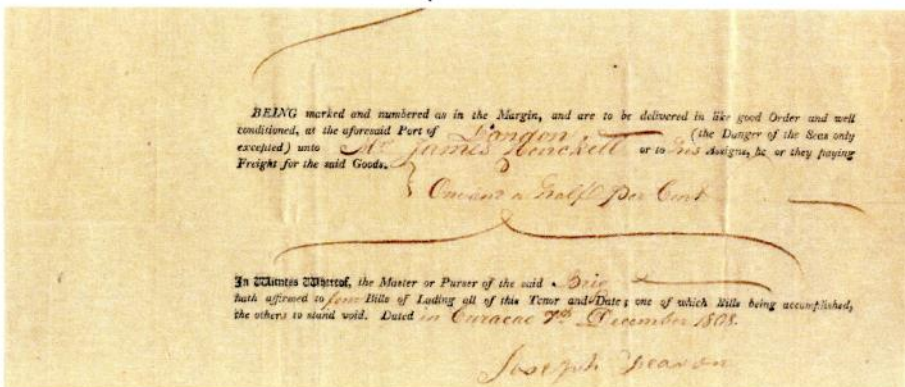 BEING marked and numbered as in the Margin, and are to be delivered in like good Order and well
conditioned, at the aforesaid Port of (the Danger of the Seas only
excepted) unto Mr. James Hackett or to his Assigns, he or they paying
Freight for the said Goods.
One and a Half per Cent
In Witness Whereof, the Master or Purser of the said Brig
hath affirmed to four Bills of Lading all of this Tenor and Date; one of which Bills being accomplished,
the others to stand void. Dated in Curacao 7th December 1808.
Joseph Yeaton